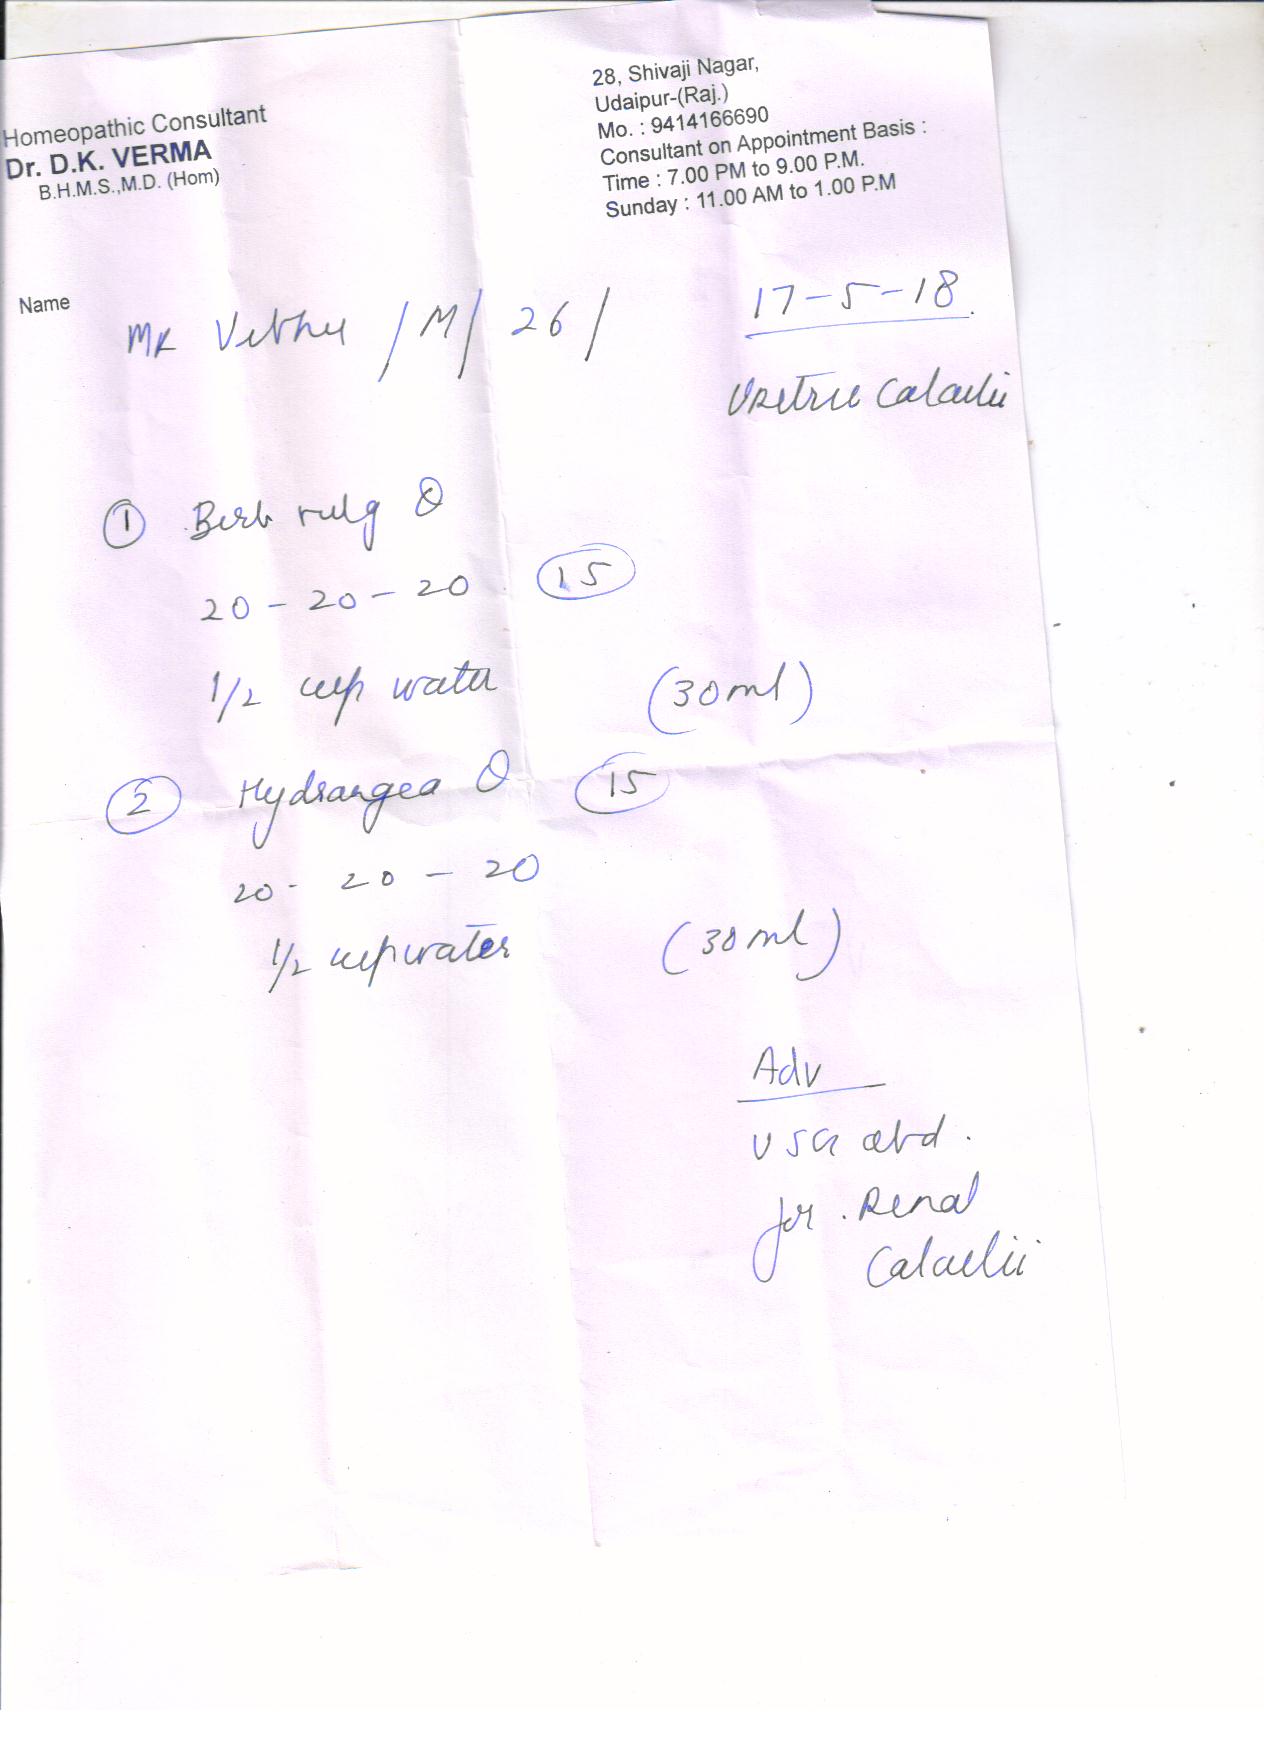 Homeopathic Consultant
Dr. D.K. VERMA
B.H.M.S.,M.D. (Hom)
28, Shivaji Nagar,
Udaipur-(Raj.)
Mo. : 9414166690
Consultant on Appointment Basis :
Time : 7.00 PM to 9.00 P.M.
Sunday : 11.00 AM to 1.00 P.M
17-5-18
Name
Mr Vibhu /M/ 26/
Calculii
1 Berb vulg Q
20 - 20 - 20 15
1/2 cup water (30ml)
2 Hydrangea Q 15
20 - 20 - 20
1/2 cup water (30ml)
Adv
USG abd.
for. Renal
Calculii